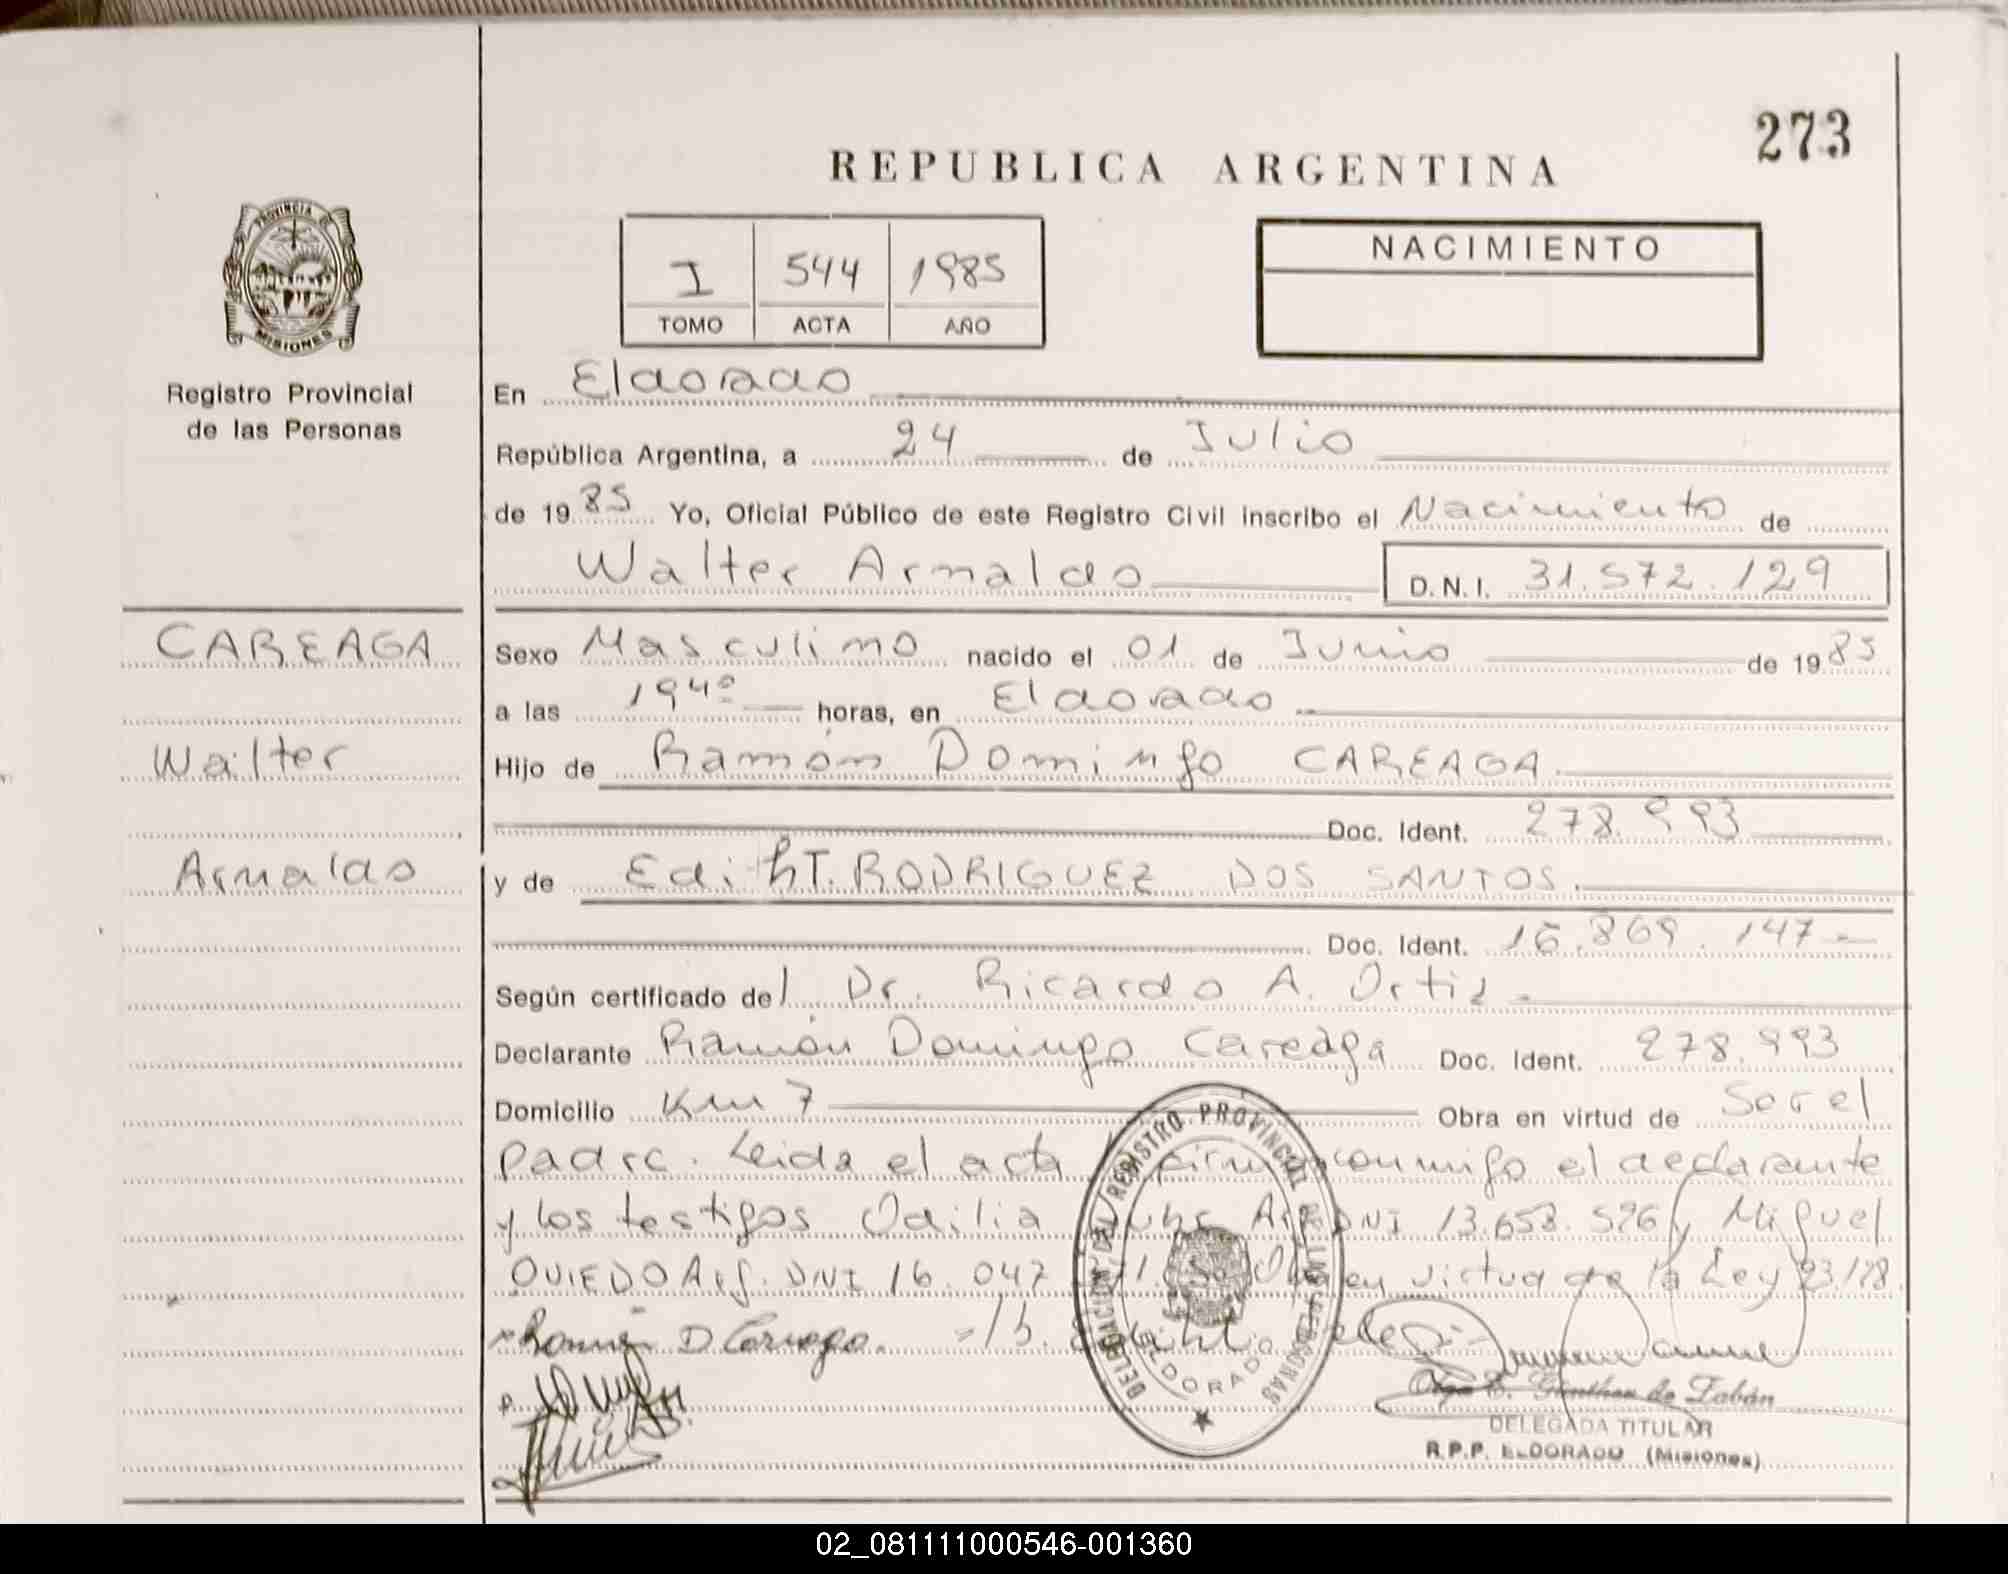 273
REPUBLICA ARGENTINA
PROVINCIA DE
MISIONES
Registro Provincial
de las Personas
I 544 1985
TOMO ACTA AÑO
NACIMIENTO
En Eldorado
República Argentina, a 24 de Julio
de 1985 Yo, Oficial Público de este Registro Civil inscribo el Nacimiento de
Walter Arnaldo D.N.I. 31.572.129
CAREAGA
Walter
Arnaldo
Sexo Masculino nacido el 01 de Junio de 1985
a las 19 40 horas, en Eldorado
Hijo de Ramón Domingo CAREAGA
Doc. Ident. 278.993
y de Edi hT. RODRIGUEZ DOS SANTOS.
Doc. Ident. 16.869.147-
Según certificado del Dr. Ricardo A. Ortiz-
Declarante Ramón Domingo Careaga Doc. Ident. 278.993
Domicilio Km 7 Obra en virtud de Ser el
padre. Leida el acta conmigo el declarante
y los testigos Odilia DNI 13.653.526 y Miguel
OVIEDO Arg. DNI 16.047 en virtud de la Ley 23.128
Ramón D Careaga.
DELEGACION DEL REGISTRO PROVINCIAL DE LAS PERSONAS
ELDORADO
Olga E. Günther de Zabán
DELEGADA TITULAR
R.P.P. ELDORADO (Misiones)
02_081111000546-001360